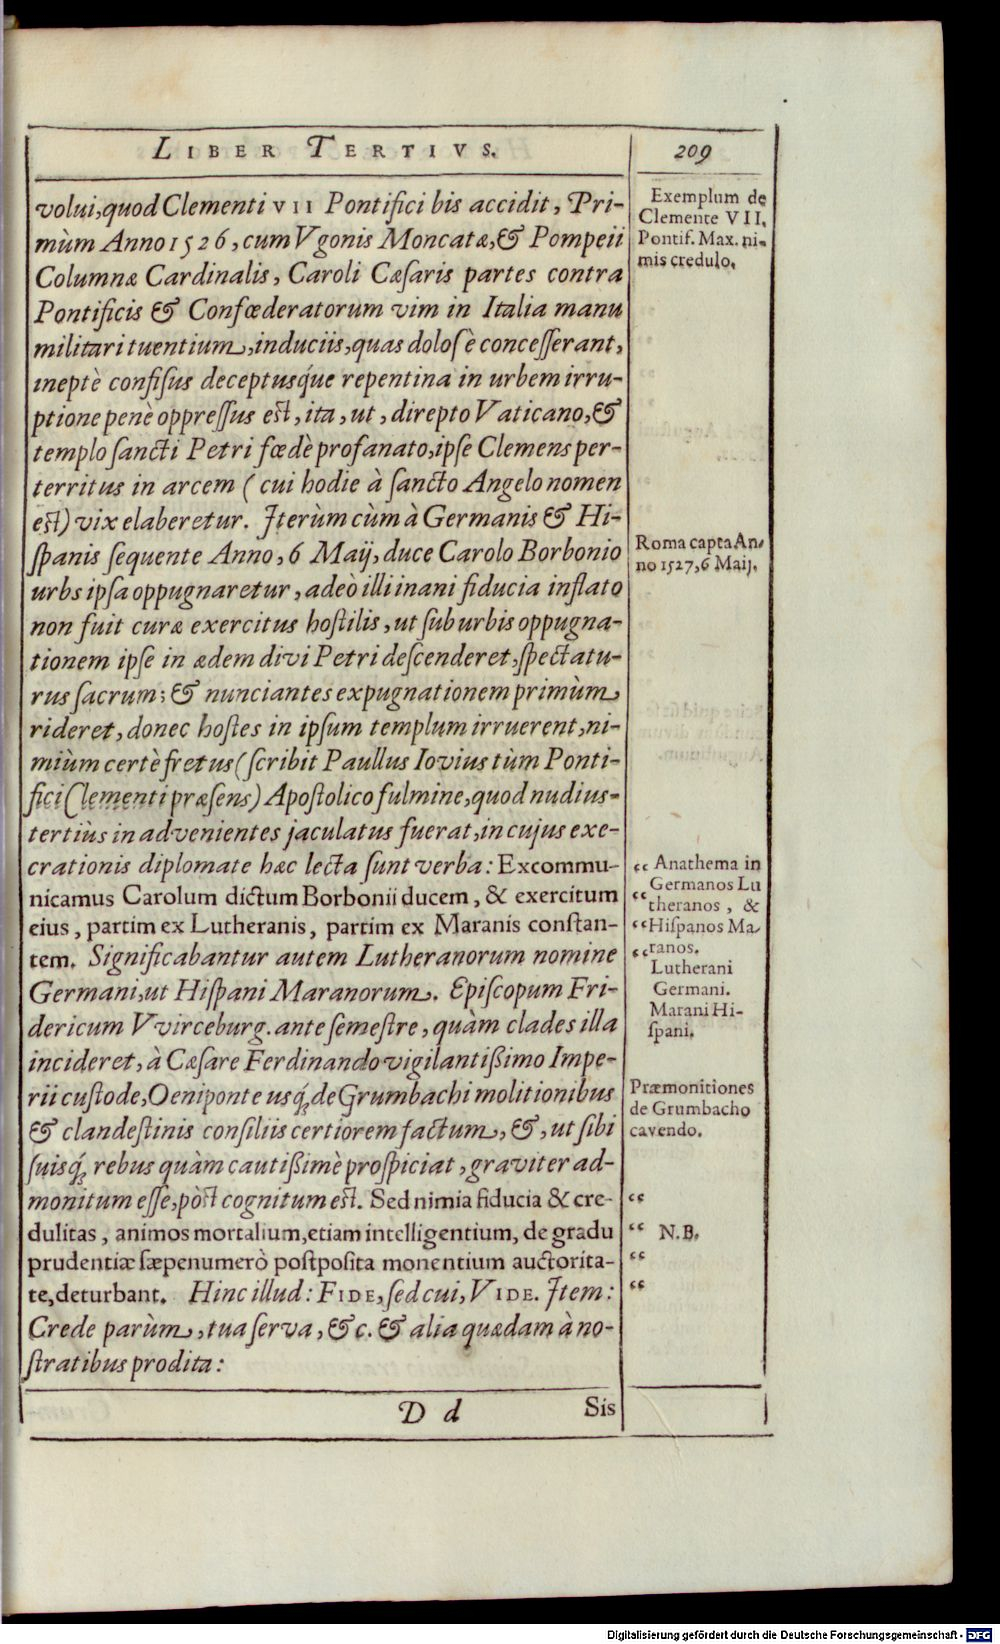 LIBER TERTIVS.
209
volui, quod Clementi VII Pontifici bis accidit, Pri-
mùm Anno 1526, cum Vgonis Moncatæ, & Pompeii
Columnæ Cardinalis, Caroli Cæsaris partes contra
Pontificis & Confœderatorum vim in Italia manu
militari tuentium, induciis, quas dolosè concesserant,
ineptè confisus deceptusq́ue repentina in urbem irru-
ptione penè oppressus est, ita, ut, direpto Vaticano, &
templo sancti Petri fœdè profanato, ipse Clemens per-
territus in arcem ( cui hodie à sancto Angelo nomen
est) vix elaberetur. Iterùm cùm à Germanis & Hi-
spanis sequente Anno, 6 Maij, duce Carolo Borbonio
urbs ipsa oppugnaretur, adeò illi inani fiducia inflato
non fuit curæ exercitus hostilis, ut sub urbis oppugna-
tionem ipse in ædem divi Petri descenderet, spectatu-
rus sacrum; & nunciantes expugnationem primùm
rideret, donec hostes in ipsum templum irruerent, ni-
miùm certè fretus (scribit Paullus Iovius tùm Ponti-
fici Clementi præsens) Apostolico fulmine, quod nudius-
tertiùs in advenientes jaculatus fuerat, in cujus exe-
crationis diplomate hæc lecta sunt verba: Excommu-
nicamus Carolum dictum Borbonii ducem, & exercitum
eius, partim ex Lutheranis, partim ex Maranis constan-
tem. Significabantur autem Lutheranorum nomine
Germani, ut Hispani Maranorum. Episcopum Fri-
dericum Vvirceburg. ante semestre, quàm clades illa
incideret, à Cæsare Ferdinando vigilantißimo Impe-
rii custode, Oeniponte usq́; de Grumbachi molitionibus
& clandestinis consiliis certiorem factum, &, ut sibi
suisq́; rebus quàm cautißimè prospiciat, graviter ad-
monitum esse, pòst cognitum est. Sed nimia fiducia & cre-
dulitas, animos mortalium, etiam intelligentium, de gradu
prudentiæ sæpenumerò postposita monentium auctorita-
te, deturbant. Hinc illud: FIDE, sed cui, VIDE. Item:
Crede parùm, tua serva, & c. & alia quædam à no-
stratibus prodita:
D d
Sis
Exemplum de
Clemente VII.
Pontif. Max. ni-
mis credulo.
Roma capta An-
no 1527, 6 Maij.
“ Anathema in
Germanos Lu
“ theranos, &
“ Hispanos Ma-
“ ranos.
Lutherani
Germani.
Marani Hi-
spani.
Præmonitiones
de Grumbacho
cavendo.
“
“ N.B.
“
“
Digitalisierung gefördert durch die Deutsche Forschungsgemeinschaft - DFG